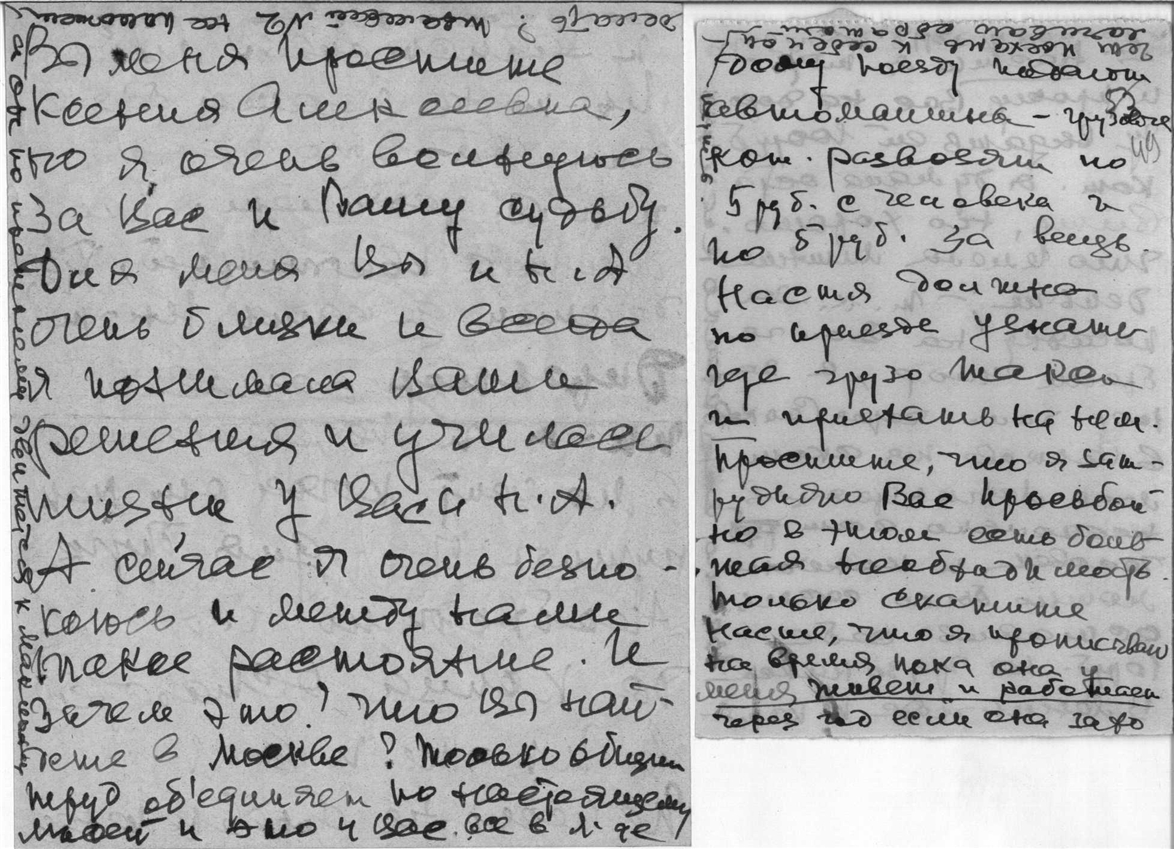 Вы меня простите
Ксения Алексеевна,
но я очень волнуюсь
за Вас и Вашу судьбу.
Для меня Вы и Н.А
очень близки и всегда
я понимала Ваши
решения и училась
жизни у Вас и Н.А.
А сейчас я очень беспо-
коюсь и между нами
такое растояние. И
зачем это! Что Вы най-
дете в Москве? Только общий
труд об'единяет по настоящему
людей и это у Вас все в
делать?
№2
к поезду подают
автомашины - грузовые
кот. развозят по
5 руб. с человека и
по 5 руб. за вещь.
Настя должна
по приезде узнать
где грузо такси
и приехать на нем.
Простите, что я зат-
рудняю Вас просьбой
но в этом есть боль-
шая необходимость.
Только скажите
Насте, что я прописываю
на время пока она у
меня живет и работает
через год если она захо